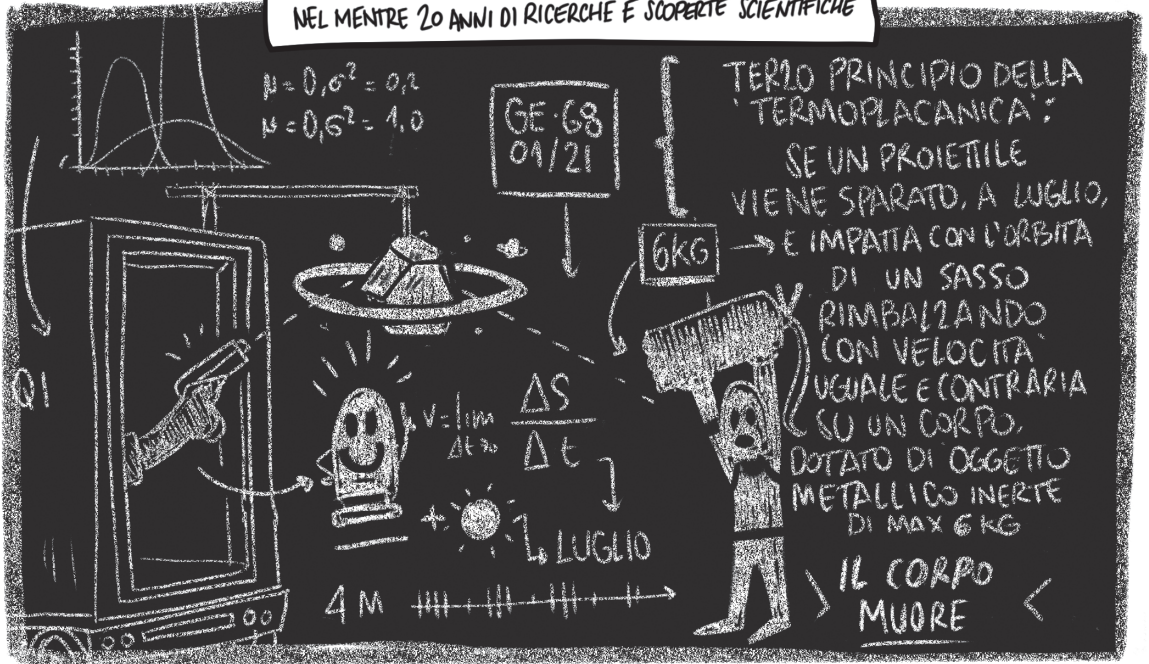 NEL MENTRE 20 ANNI DI RICERCHE E SCOPERTE SCIENTIFICHE
μ=0,σ²= 0,2
μ=0,σ²= 1,0
GE·G8
01/21
TERZO PRINCIPIO DELLA
"TERMOPLACANICA":
SE UN PROIETTILE
VIENE SPARATO, A LUGLIO,
E IMPATTA CON L'ORBITA
DI UN SASSO
RIMBALZANDO
CON VELOCITA'
UGUALE E CONTRARIA
SU UN CORPO,
DOTATO DI OGGETTO
METALLICO INERTE
DI MAX 6 KG
IL CORPO
MUORE
6KG
Q1
V=lim ΔS
Δt→0 Δt
+
LUGLIO
4 M